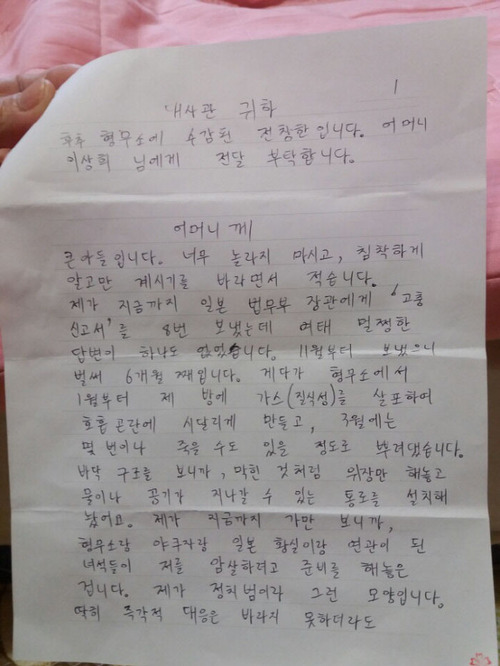 1
대사관 귀하
후추 형무소에 수감된 전창한입니다. 어머니
이상희 님에게 전달 부탁합니다.
어머니께
큰아들입니다. 너무 놀라지 마시고, 침착하게
알고만 계시기를 바라면서 적습니다.
제가 지금까지 일본 법무부 장관에게 '고충
신고서'를 8번 보냈는데 여태 멀쩡한
답변이 하나도 없었습니다. 11월부터 보냈으니
벌써 6개월 째입니다. 게다가 형무소에서
1월부터 제 방에 가스(질식성)를 살포하여
호흡 곤란에 시달리게 만들고, 3월에는
몇 번이나 죽을 수도 있을 정도로 뿌려댔습니다.
바닥 구조를 보니까, 막힌 것처럼 위장만 해놓고
물이나 공기가 지나갈 수 있는 통로를 설치해
놨어요. 제가 지금까지 가만 보니까,
형무소랑 야쿠자랑 일본 황실이랑 연관이 된
녀석들이 저를 암살하려고 준비를 해놓은
겁니다. 제가 정치범이라 그런 모양입니다.
딱히 즉각적 대응은 바라지 못하더라도